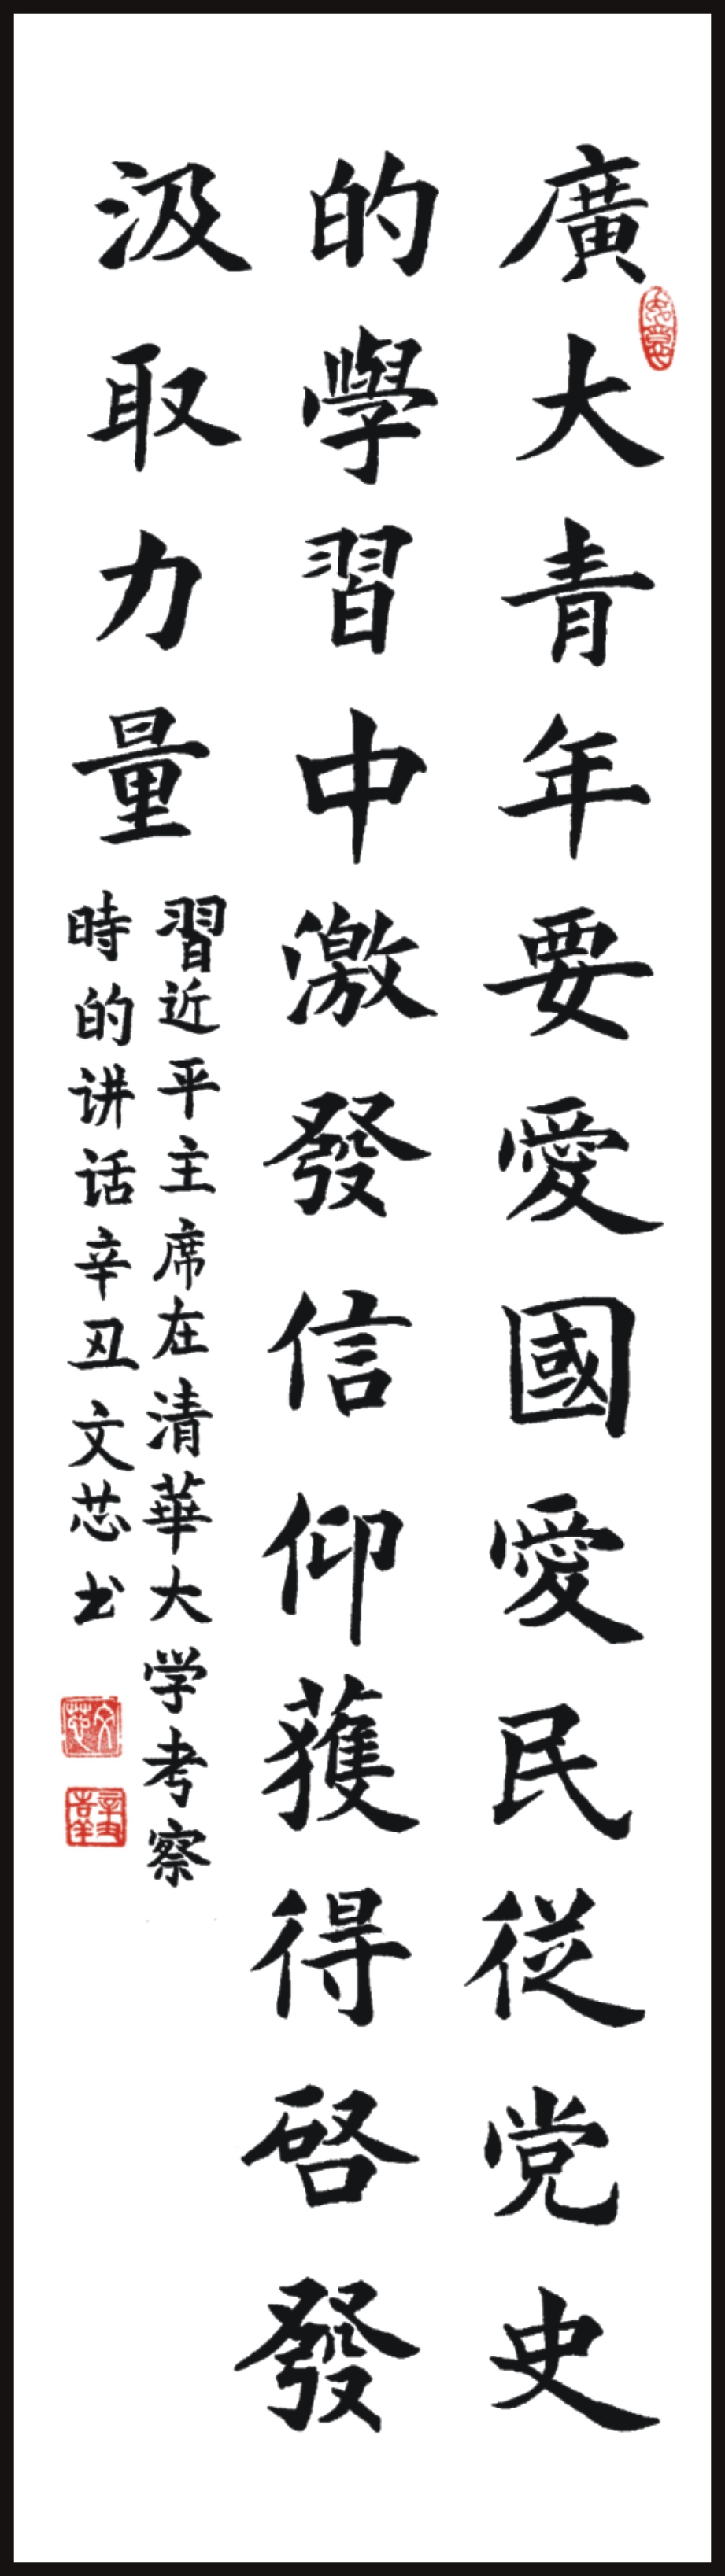 廣大青年要愛國愛民従党史
的學習中激發信仰獲得啓發
汲取力量
習近平主席在清華大学考察
時的讲话辛丑文芯书
文芯